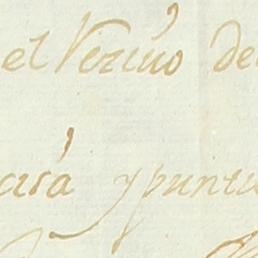 el Vecino de
cara y puntu